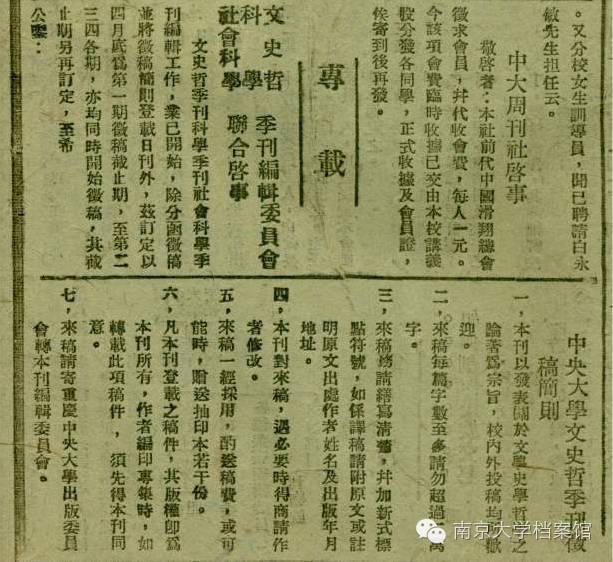 。又分校女生訓導員，聞已聘請白永
敏先生担任云。
中大周刊社啓事
敬啓者：本社前代中國滑翔總會
徵求會員，幷代收會費，每人一元。
今該項會費臨時收據已交由本校講義
股分發各同學，正式收據及會員證，
俟寄到後再發。
專載
文史哲
科學 季刊編輯委員會
社會科學 聯合啓事
文史哲季刊科學季刊社會科學季
刊編輯工作，業已開始，除分函徵稿
並將徵稿簡則登載日刊外，茲訂定以
四月底爲第一期徵稿截止期，至第二
三四各期，亦均同時開始徵稿，其截
止期另再訂定，至希
公鑒：
中央大學文史哲季刊徵
稿簡則
一，本刊以發表關於文學史學哲學之
論著爲宗旨，校內外投稿均所歡
迎。
二，來稿每篇字數至多請勿超過二萬
字。
三，來稿務請繕寫清楚，幷加新式標
點符號，如係譯稿請附原文或註
明原文出處作者姓名及出版年月
地址。
四，本刊對來稿，遇必要時得商請作
者修改。
五，來稿一經採用，酌送稿費，或可
能時，贈送抽印本若干份。
六，凡本刊登載之稿件，其版權卽爲
本刊所有，作者編印專集時，如
轉載此項稿件，須先得本刊同
意。
七，來稿請寄重慶中央大學出版委員
會轉本刊編輯委員會。
南京大学档案馆